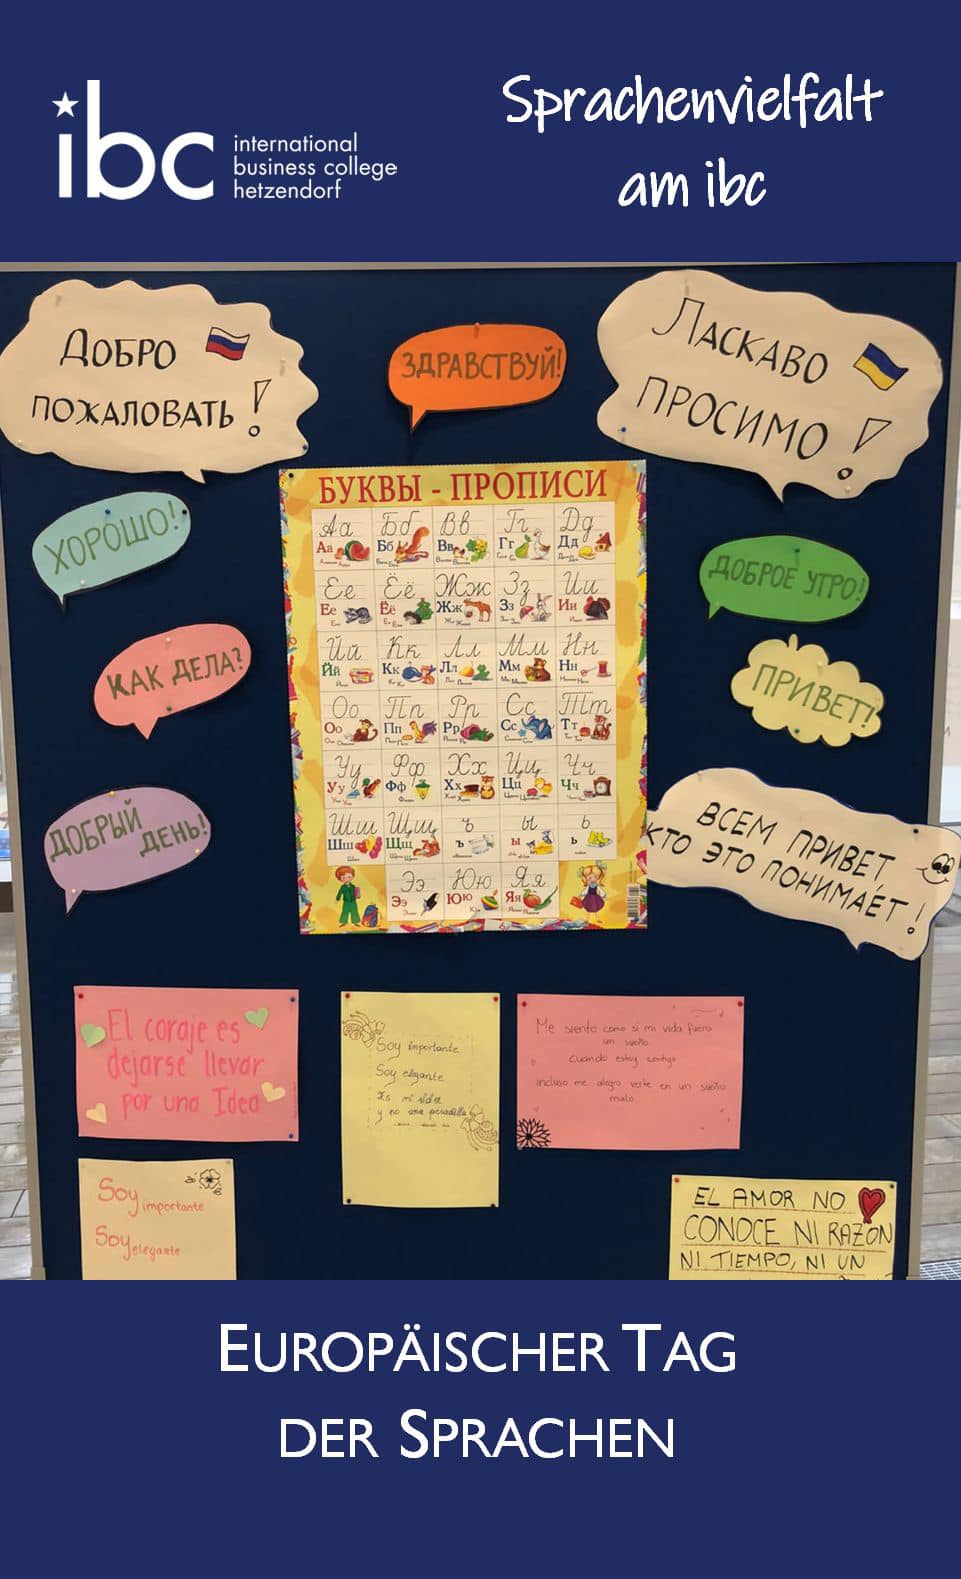 ibc
international
business college
hetzendorf
Sprachenvielfalt
am ibc
ДОБРО
ПОЖАЛОВАТЬ!
ЗДРАВСТВУЙ!
ЛАСКАВО
ПРОСИМО!
ХОРОШО!
КАК ДЕЛА?
ДОБРЫЙ
ДЕНЬ!
БУКВЫ - ПРОПИСИ
Аа Бб Вв Гг Дд
Аа Бб Вв Гг Дд
Ее Ёё Жж Зз Ии
Ее Ёё Жж Зз Ии
Йй Кк Лл Мм Нн
Йй Кк Лл Мм Нн
Оо Пп Рр Сс Тт
Оо Пп Рр Сс Тт
Уу Фф Хх Цц Чч
Уу Фф Хх Цц Чч
Шш Щщ ъ ы ь
Шш Щщ ъ ы ь
Ээ Юю Яя
Ээ Юю Яя
ДОБРОЕ УТРО!
ПРИВЕТ!
ВСЕМ ПРИВЕТ,
КТО ЭТО ПОНИМАЕТ!
El coraje es
dejarse llevar
por una Idea
Soy importante
Soy elegante
Es mi vida
y no una pesadilla
Me siento como si mi vida fuera
un sueño
cuando estoy contigo
incluso me alegro verte en un sueño
malo.
Soy importante
Soy elegante
EL AMOR NO
CONOCE NI RAZON
NI TIEMPO, NI UN
EUROPÄISCHER TAG
DER SPRACHEN